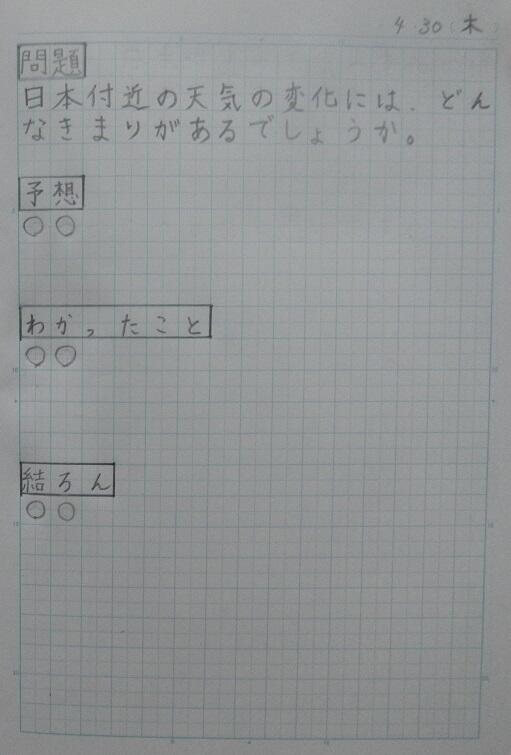 4・30(木)
問題
日本付近の天気の変化には、どん
なきまりがあるでしょうか。
予想
○○
わかったこと
○○
結ろん
○○